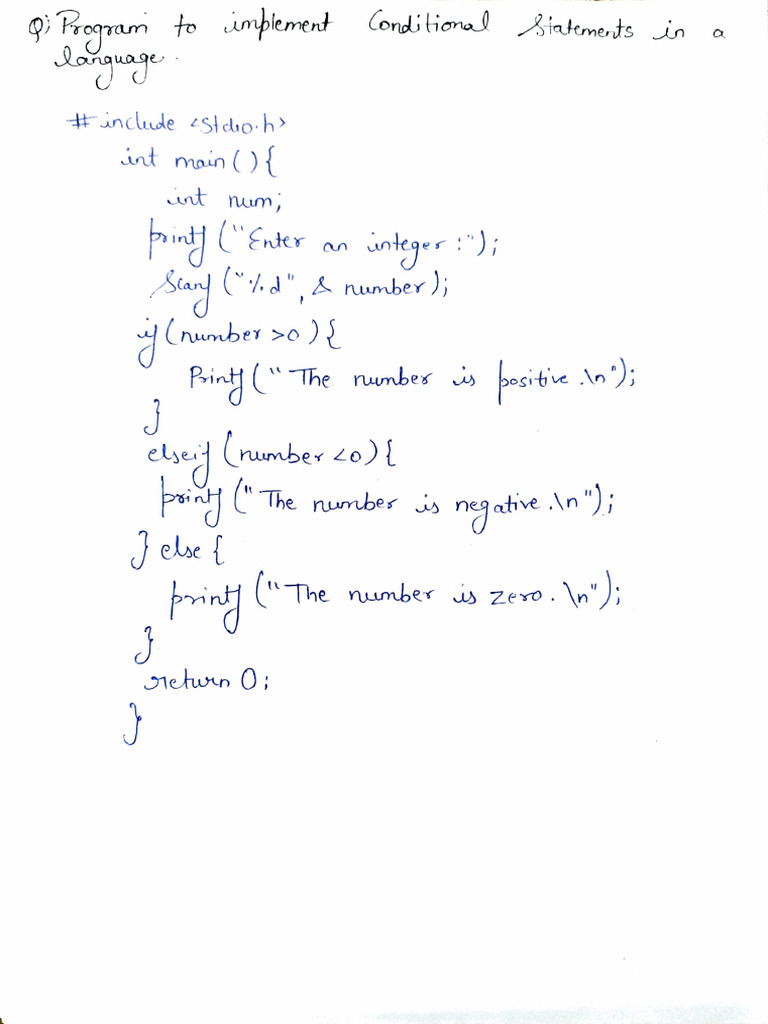 Q; Program to implement Conditional Statements in a
language.
# include <stdio.h>
int main () {
int num;
printf ("Enter an integer :");
Scanf ("%d", & number);
if (number >0) {
Printf (" The number is positive .\n");
}
elseif (number <0) {
printf (" The number is negative .\n");
} else {
printf ("The number is zero. \n");
}
return 0;
}